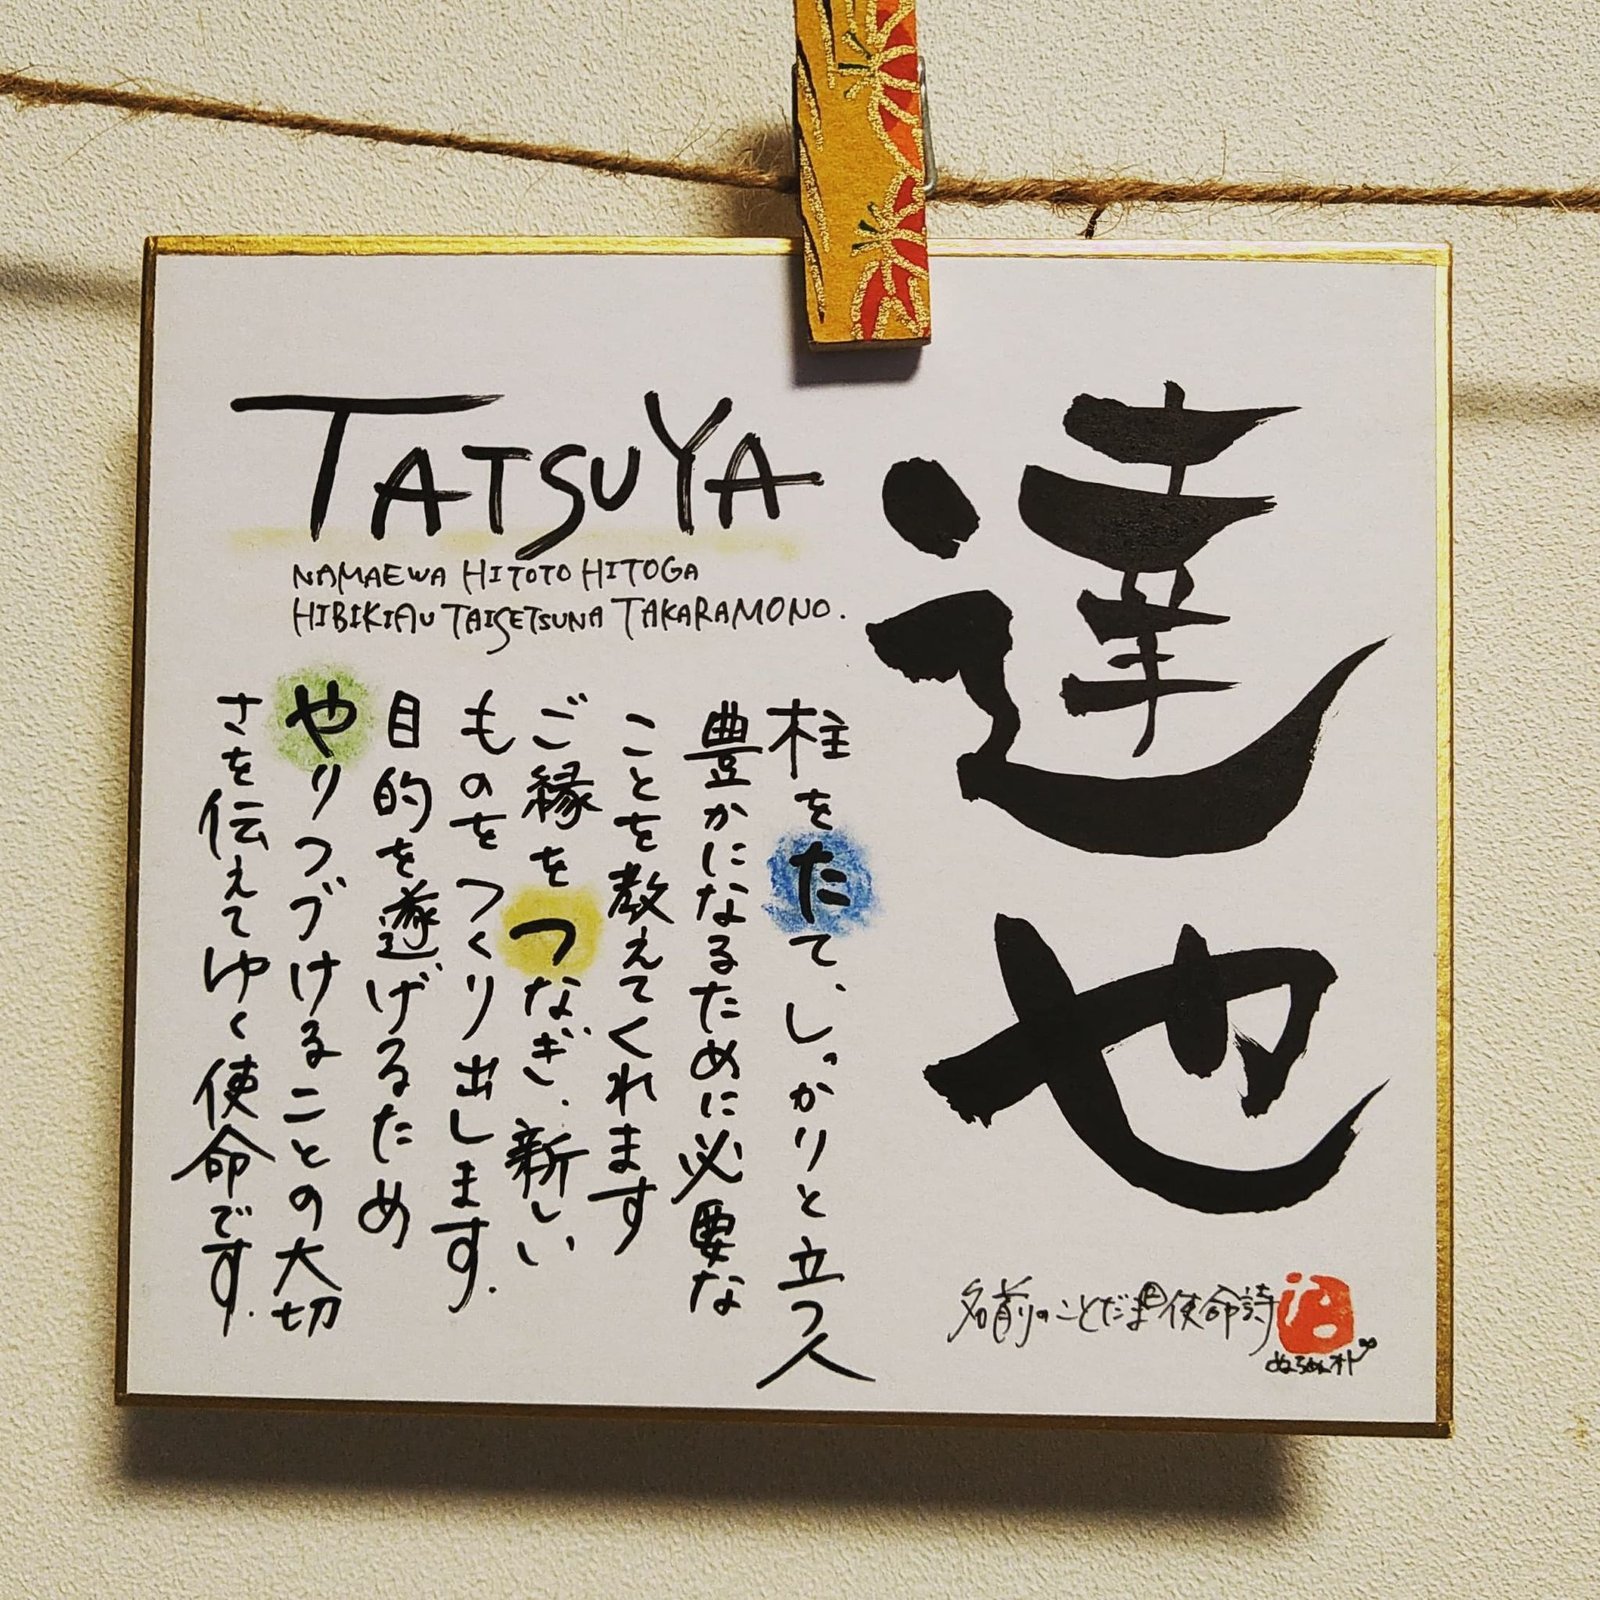 達也
TATSUYA
NAMAEWA HITOTO HITOGA
HIBIKIAU TAISETSUNA TAKARAMONO.
柱をたて、しっかりと立つ人
豊かになるために必要な
ことを教えてくれます
ご縁をつなぎ、新しい
ものをつくり出します。
目的を遂げるため
やりつづけることの大切
さを伝えてゆく使命です。
名前のことだま 使命詩